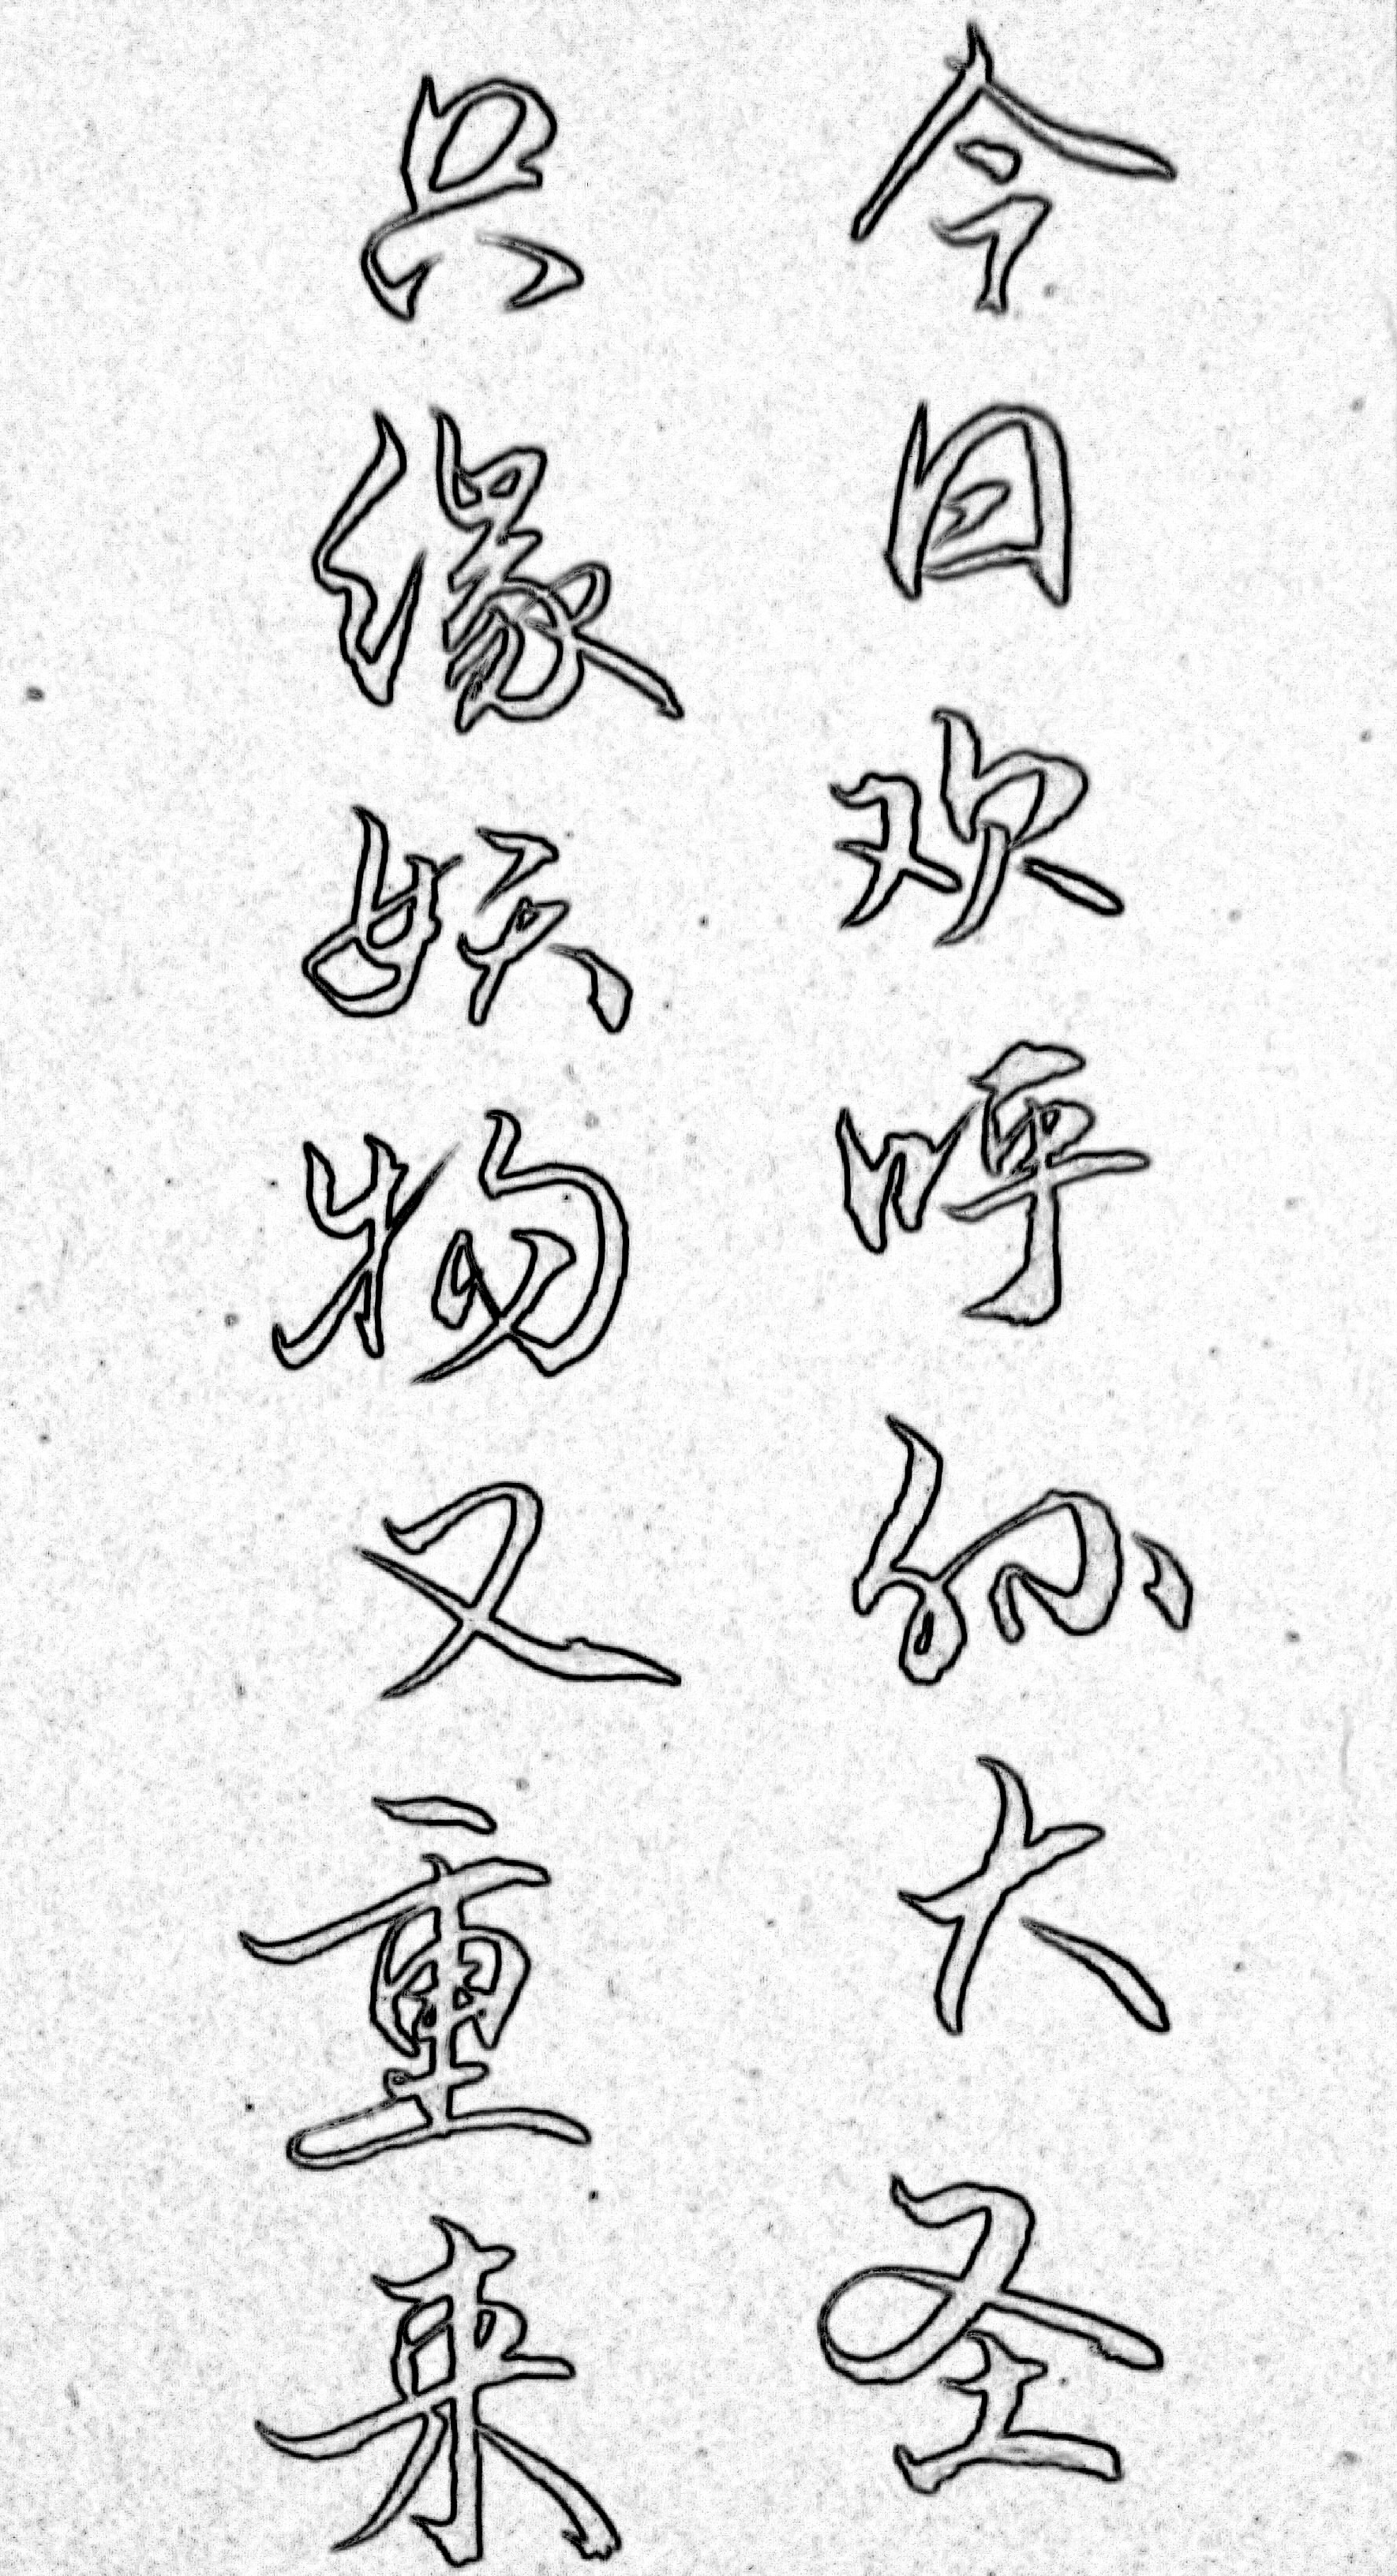 今日欢呼孙大圣
只缘妖物又重来